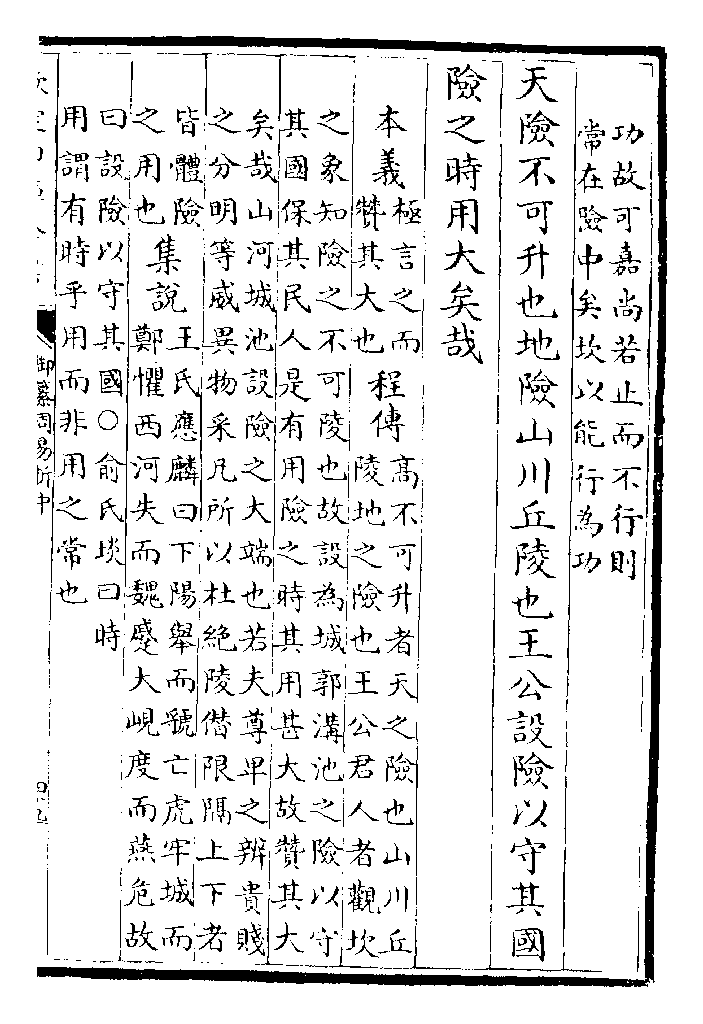 功故可嘉尚若止而不行則
常在險中矣坎以能行為功
天險不可升也地險山川丘陵也王公設險以守其國
險之時用大矣哉
本義 極言之而
贊其大也 程傳 高不可升者天之險也山川丘
陵地之險也王公君人者觀坎
之象知險之不可陵也故設為城郭溝池之險以守
其國保其民人是有用險之時其用甚大故贊其大
矣哉山河城池設險之大端也若夫尊卑之辨貴賤
之分明等威異物采凡所以杜絕陵僭限隔上下者
皆體險
之用也 集說 王氏應麟曰下陽舉而虢亡虎牢城而
鄭懼西河失而魏蹙大峴度而燕危故
曰設險以守其國○俞氏琰曰時
用謂有時乎用而非用之常也
御纂周易折中